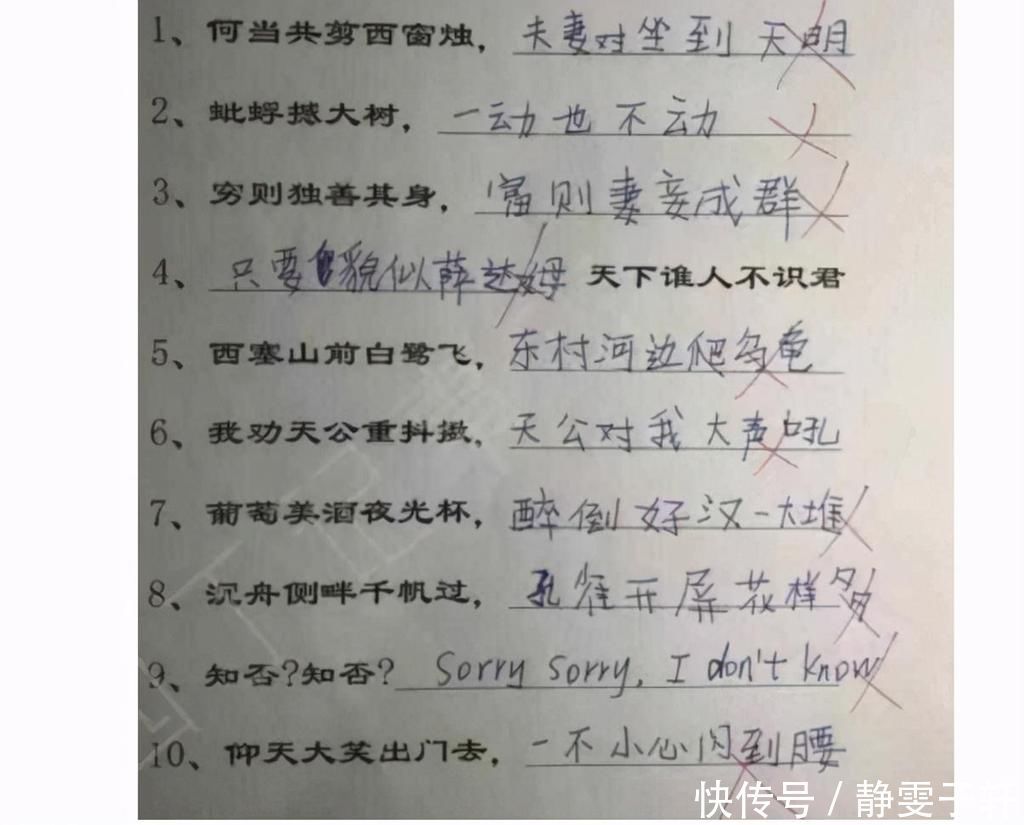 1、何当共剪西窗烛，夫妻对坐到天明
2、蚍蜉撼大树，一动也不动
3、穷则独善其身，富则妻妾成群
4、只要貌似薛达姆 天下谁人不识君
5、西塞山前白鹭飞，东村河边爬乌龟
6、我劝天公重抖擞，天公对我大声吼
7、葡萄美酒夜光杯，醉倒好汉一大堆
8、沉舟侧畔千帆过，孔雀开屏花样多
9、知否?知否? Sorry sorry, I don't know
10、仰天大笑出门去，一不小心闪到腰
快传号／静雯子轩